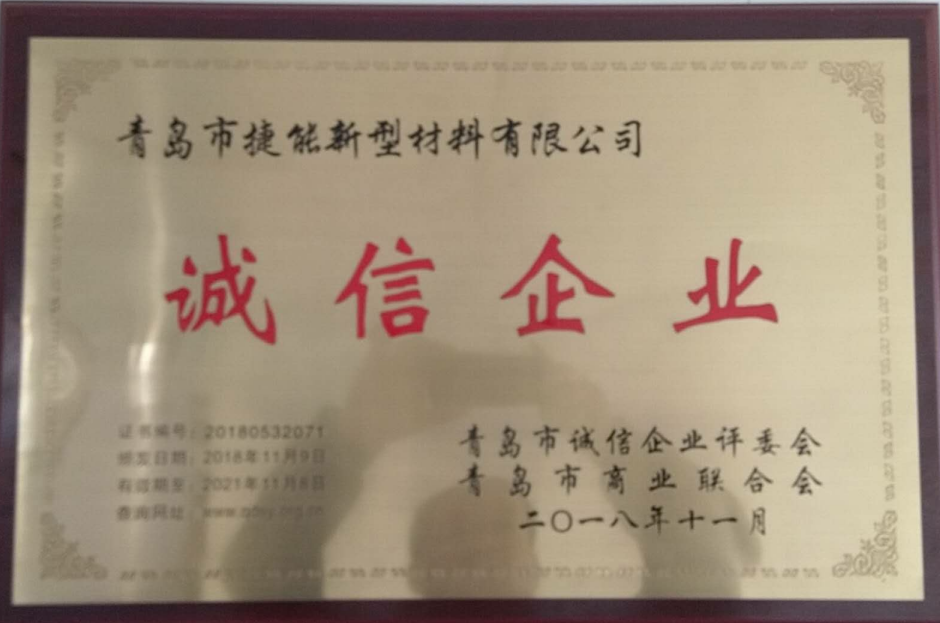 青岛市捷能新型材料有限公司
诚信企业
证书编号：20180532071
颁发日期：2018年11月9日
有效期至：2021年11月8日
查询网址：
青岛市诚信企业评委会
青岛市商业联合会
二〇一八年十一月